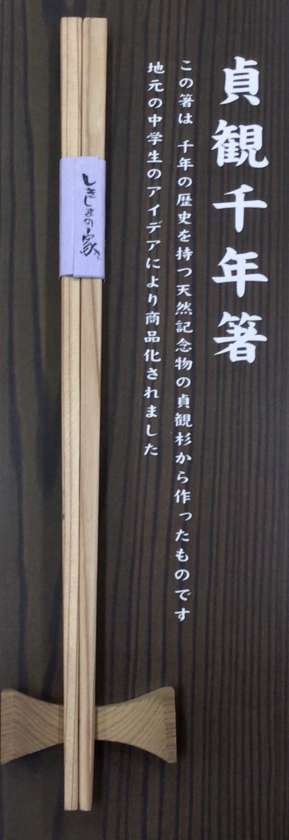 貞観千年箸
この箸は 千年の歴史を持つ天然記念物の貞観杉から作ったものです
地元の中学生のアイデアにより商品化されました
しきじまの家